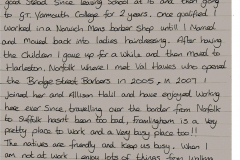 good stead since leaving school at 16 and then going
to GT. Yarmouth College for 2 years. Once qualified I
worked in a Norwich Mans barber Shop until I Married
and Moved back into ladies hairdressing. After having
the Children I gave up for a while and then Moved to
Harleston, Norfolk where I met Val Hawes who opened
the Bridge Street Barbers in 2005, in 2007 I
joined her and Allison Hall and have enjoyed working
here ever since, travelling over the border from Norfolk
to Suffolk hasnt been too bad, Framlingham is a Very
pretty place to work and a Very busy place too!!
The natives are friendly and keep us busy. When I
am not at work I enjoy lots of things from walking